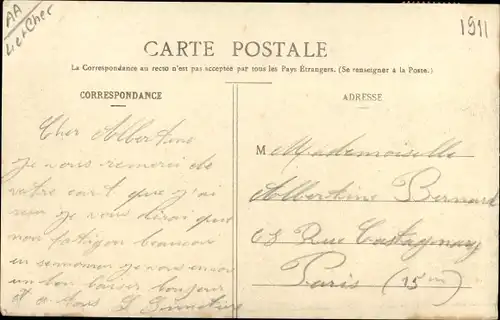 AA
Loir et Cher
1911
CARTE POSTALE
La Correspondance au recto n'est pas acceptée par tous les Pays Étrangers. (Se renseigner à la Poste.)
CORRESPONDANCE
Cher Albertine
je vous remerci de
votre cart que j'ai
je vous dirai que
mon fatigon beaucou
en je vous envoi
un bon baiser bonjour
a tous
ADRESSE
M Mademoiselle
Albertine Bernard
68 Rue Castagnary
Paris (15m)